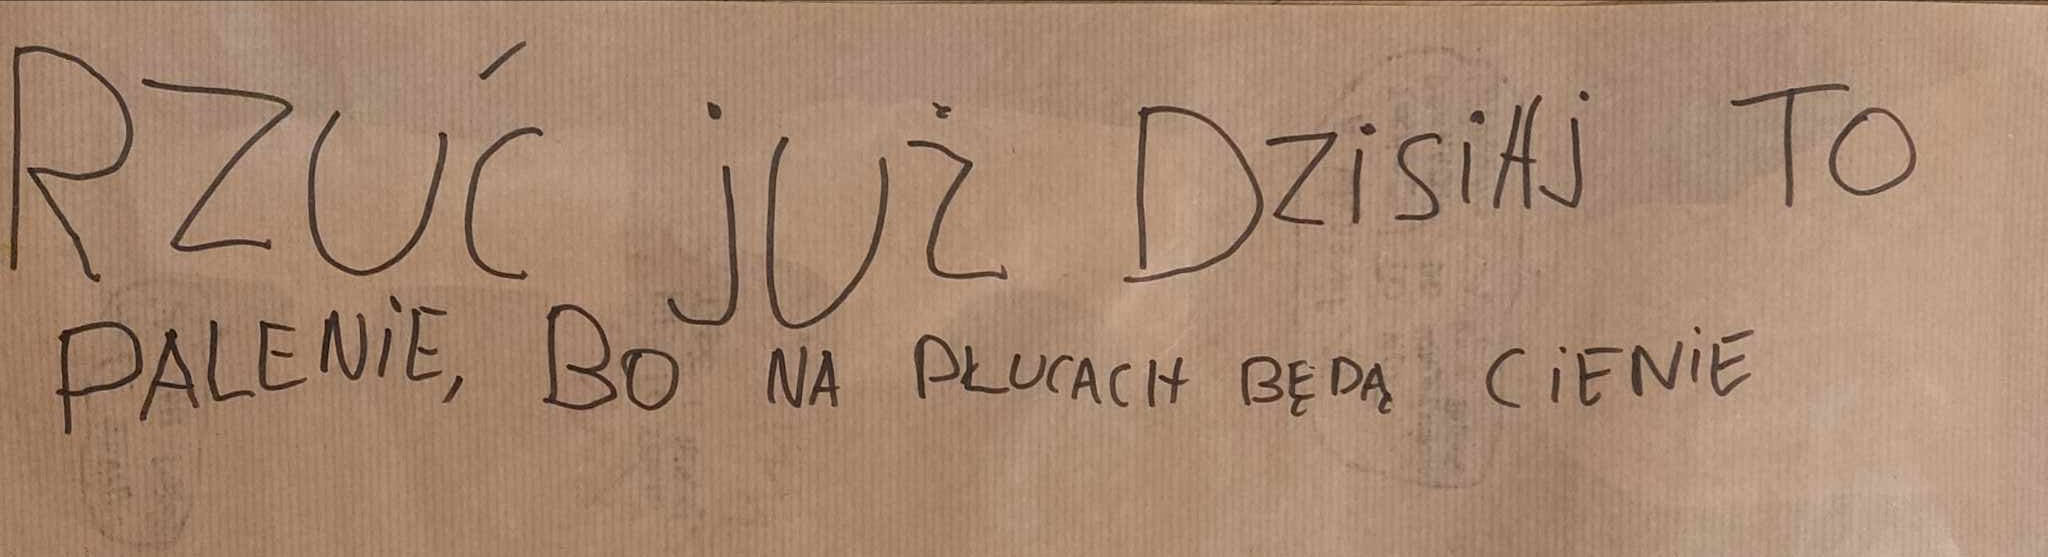 RZUĆ JUŻ DZISIAJ TO
PALENIE, BO NA PŁUCACH BĘDĄ CIENIE